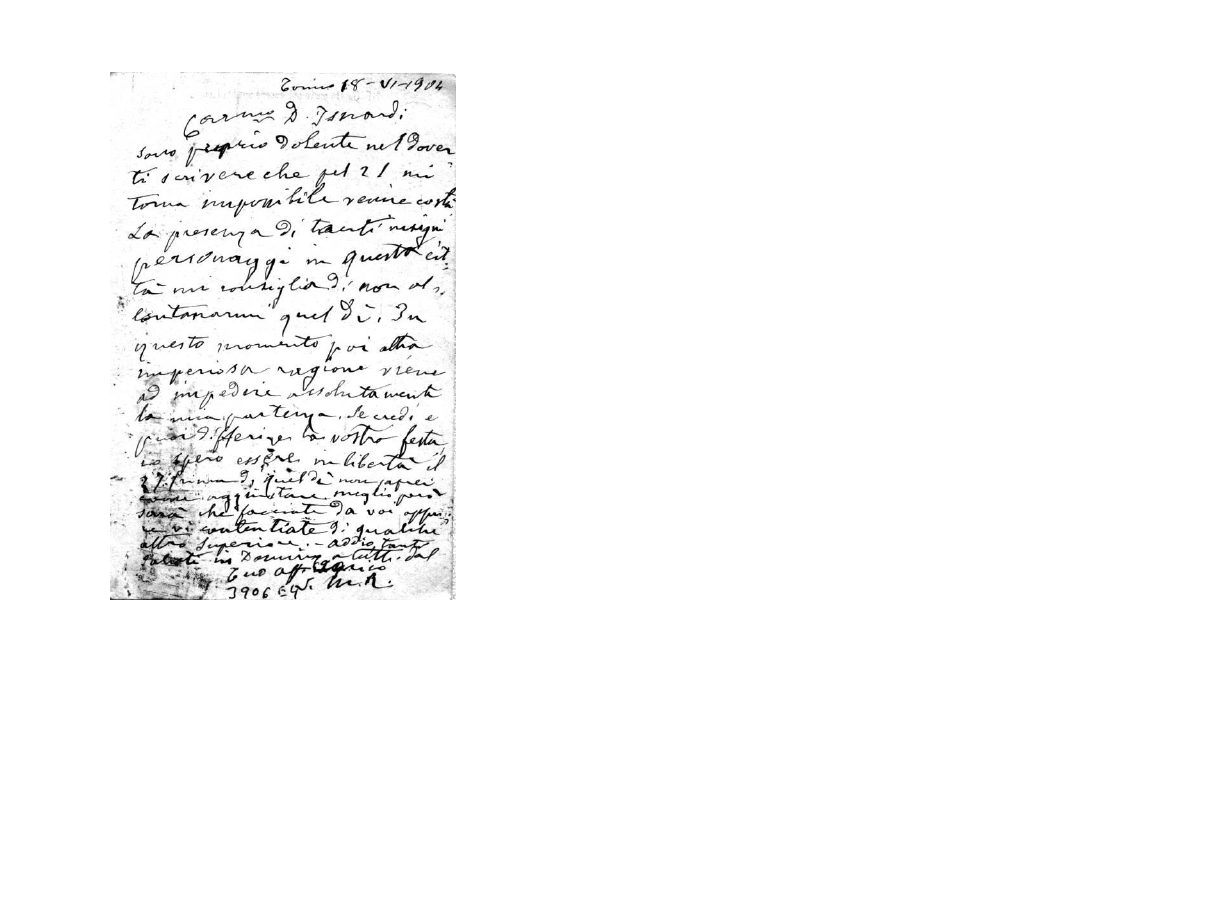 Torino 18-VI-1904
Carmo D. Isnardi
sono proprio dolente nel dover
ti scrivere che pel 21 mi
torna impossibile venire costì
La presenza di tanti insigni
personaggi in questa cit-
tà mi consiglia di non al-
lontanarmi quel dì. In
questo momento poi altra
imperiosa ragione viene
ad impedire assolutamente
la mia partenza. Se credi e
puoi differire la vostra festa
io spero essere in libertà il
27. Prima di quel dì non saprei
come aggiustare. meglio però
sarà che facciate da voi oppu-
re vi contentiate di qualche
altro Superiore. - addio, tanti
saluti in Domino a tutti. dal
Tuo aff. amico
3906 M.R.